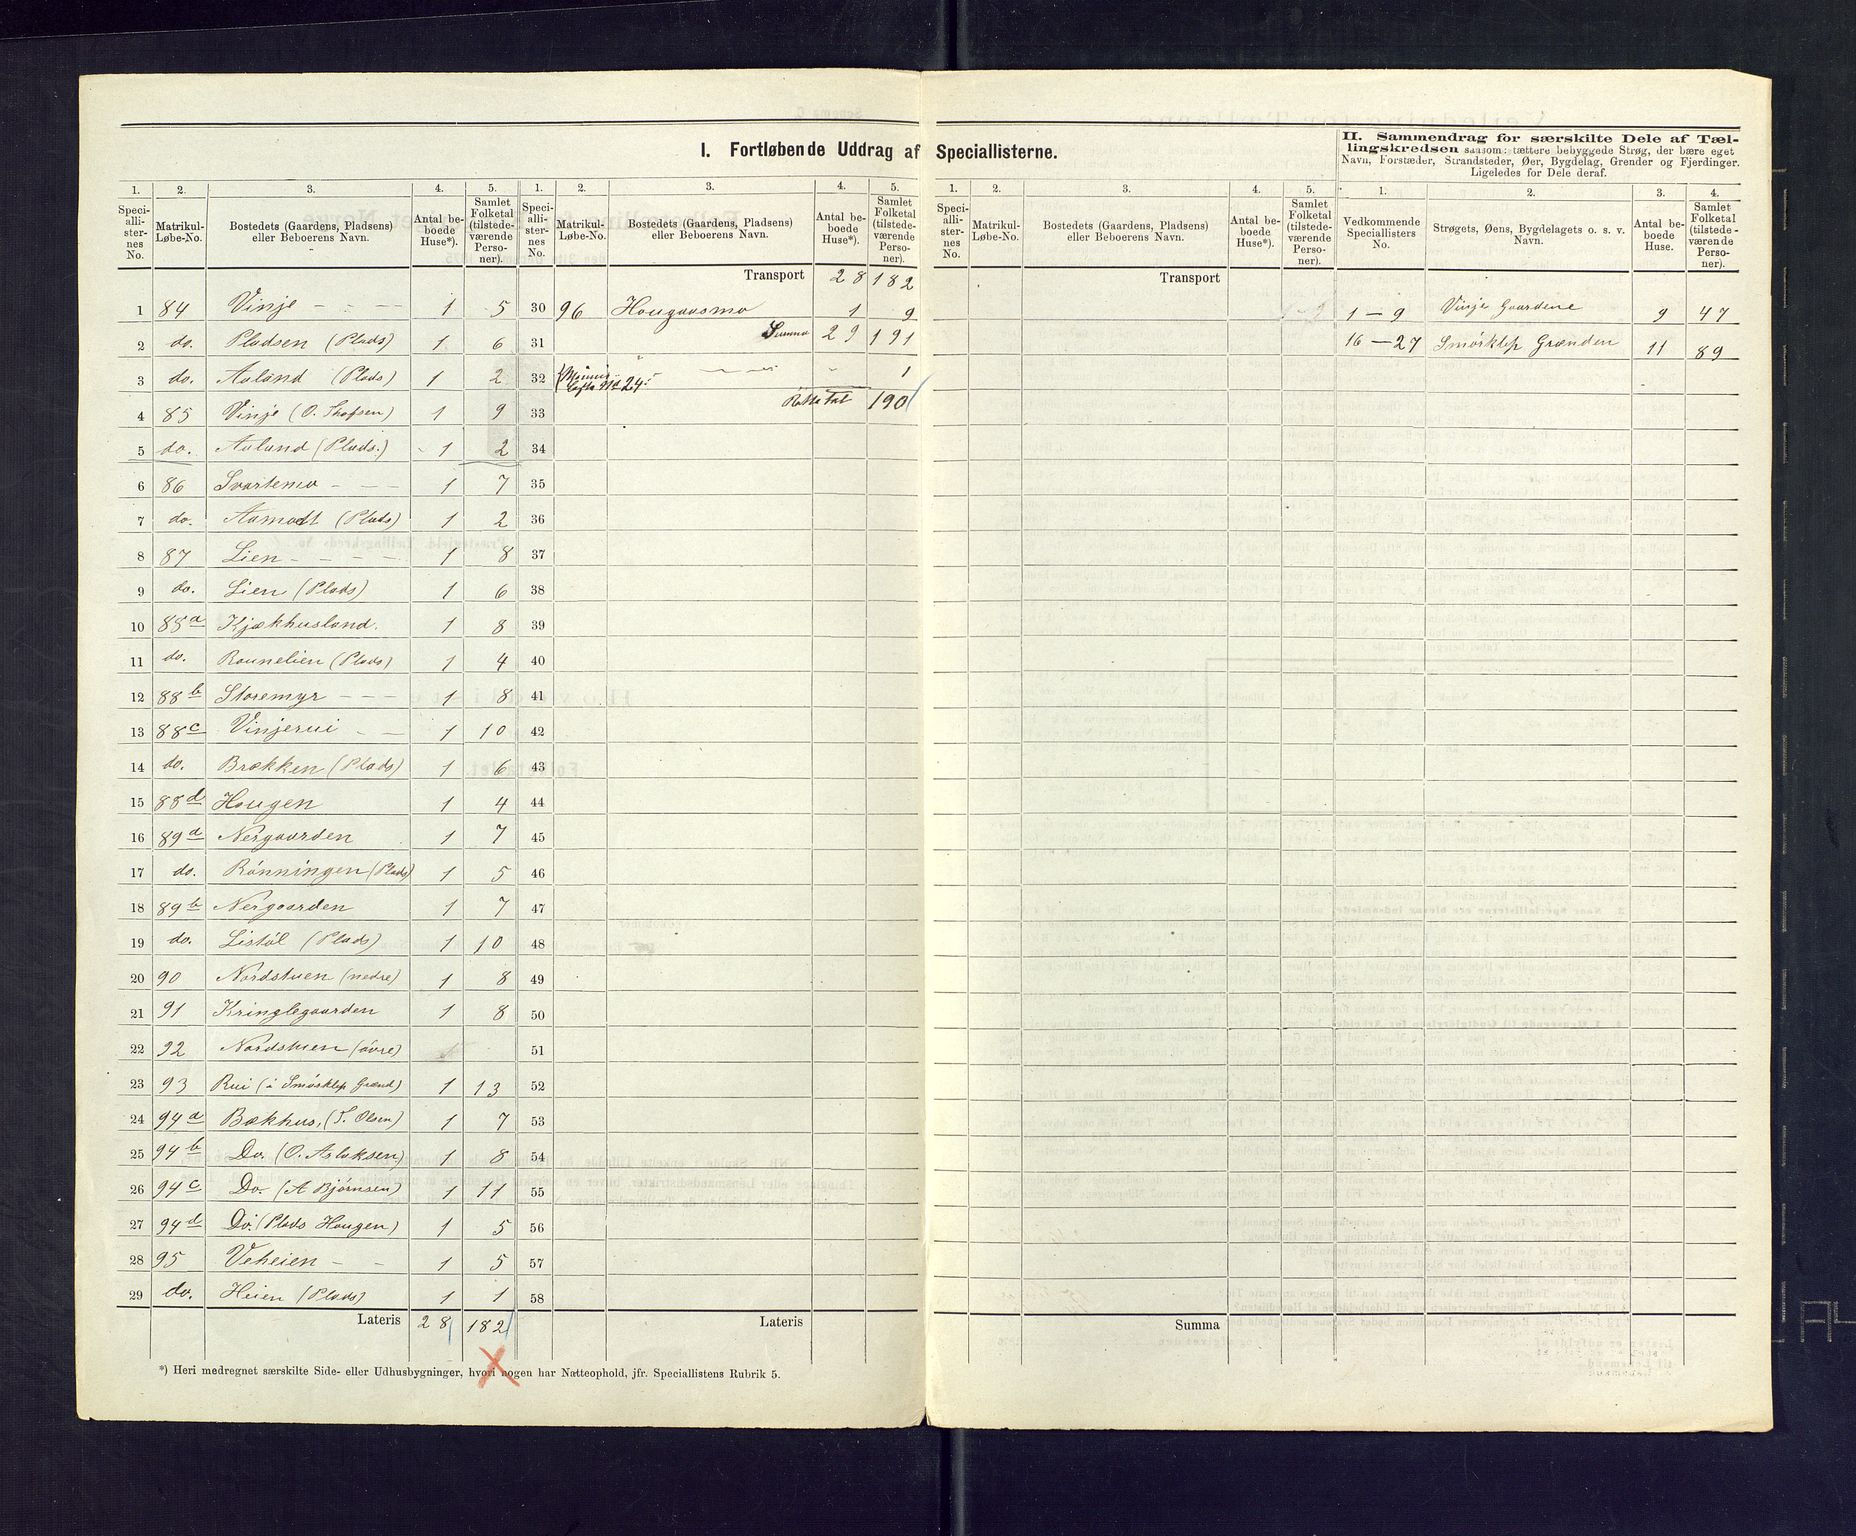 I. Fortløbende Uddrag af Speciallisterne.
II. Sammendrag for særskilte Dele af Tæl-
lingskredsen saasom: tættere bebyggede Strøg, der bære eget
Navn, Forstæder, Strandsteder, Øer, Bygdelag, Grender og Fjerdinger.
Ligeledes for Dele deraf.
1. 2. 3. 4. 5. 1. 2. 3. 4. 5. 1. 2. 3. 4. 5. 1. 2. 3. 4.
Speciallisternes No. Matrikul-Løbe-No. Bostedets (Gaardens, Pladsens) eller Beboerens Navn. Antal beboede Huse*). Samlet Folketal (tilstedeværende Personer).
Speciallisternes No. Matrikul-Løbe-No. Bostedets (Gaardens, Pladsens) eller Beboerens Navn. Antal beboede Huse*). Samlet Folketal (tilstedeværende Personer).
Speciallisternes No. Matrikul-Løbe-No. Bostedets (Gaardens, Pladsens) eller Beboerens Navn. Antal beboede Huse*). Samlet Folketal (tilstedeværende Personer).
Vedkommende Speciallisters No. Strøgets, Øens, Bygdelagets o. s. v. Navn. Antal beboede Huse. Samlet Folketal (tilstedeværende Personer).
1 84 Vinje - - - 1 5
2 do. Pladsen (Plads) 1 6
3 do. Aalünd (Plads) 1 2
4 85 Vinje (O. Thofsen) 1 9
5 do. Aalund (Plads.) 1 2
6 86 Svartemo - - - 1 7
7 do. Aamodt (Plads) 1 2
8 87 Lien - - - - 1 8
9 do. Lien (Plads) 1 6
10 88a Kjækhusland. 1 8
11 do. Raunelien (Plads) 1 4
12 88b Storemyr - - - 1 8
13 88c Vinjerui - - 1 10
14 do. Brækken (Plads) 1 6
15 88d Hougen 1 4
16 89a Nergaarden 1 7
17 do. Rönningen (Plads) 1 5
18 89b Nergaarden 1 7
19 do. Listöl (Plads) 1 10
20 90 Nordstuen (nedre) 1 8
21 91 Kringlegaarden 1 8
22 92 Nordstuen (övre)
23 93 Rui (i Smörklep Grænd) 1 13
24 94a Bækhus, (T. Olsen) 1 7
25 94b Do. (O. Aslaksen) 1 8
26 94c Do. (A Bjørnsen) 1 11
27 94d Do. (Plads Hougen) 1 5
28 95 Veheien - - 1 5
29 do. Heien (Plads) 1 1
Lateris 28 182
Transport 28 182
30 96 Hougaasmo 1 9
31 Summa 29 191
32 No 24 " 1
33 Rette Tal 190
34
35
36
37
38
39
40
41
42
43
44
45
46
47
48
49
50
51
52
53
54
55
56
57
58
Lateris
*) Heri medregnet særskilte Side- eller Udhusbygninger, hvori nogen har Natteophold, jfr. Speciallistens Rubrik 5.
Transport
Summa
1 - 9 Vinje Gaardene 9 47
16 - 27 Smörklep Grænden 11 89